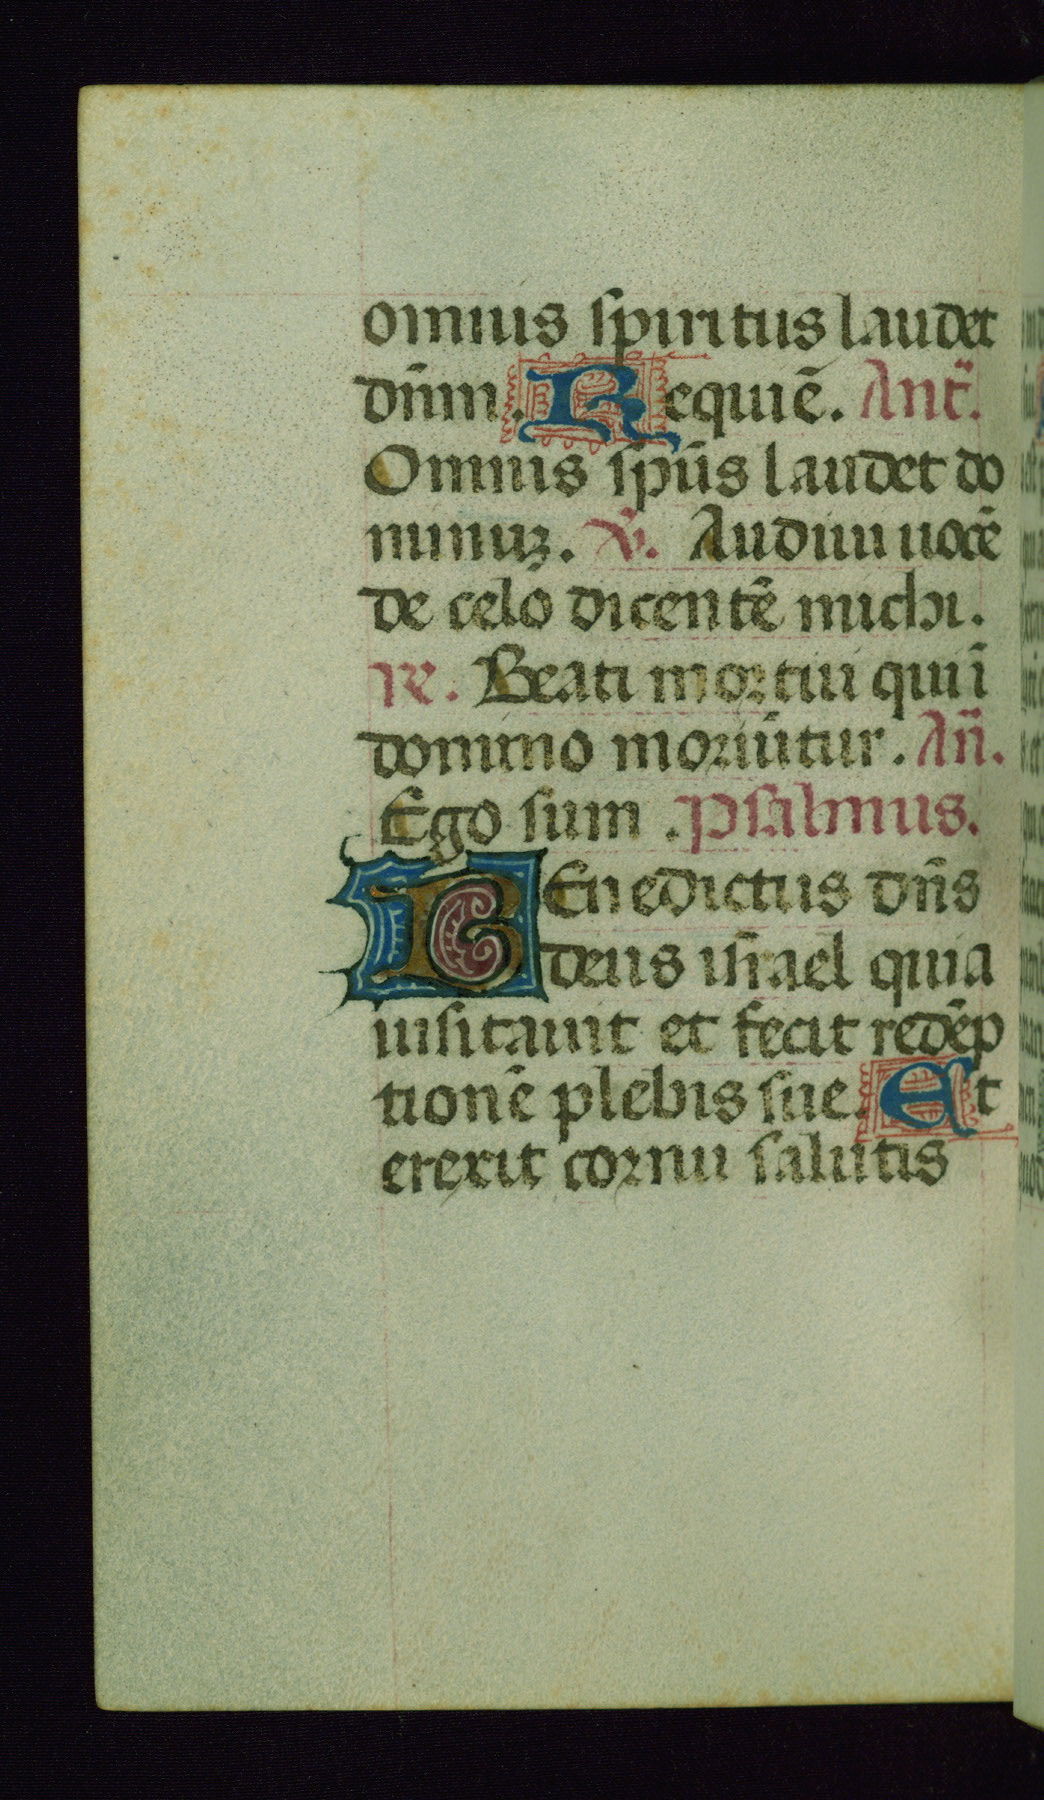 omnis spiritus laudet
dn̄m. Requiē. Ant̄.
Omnis sp̄us laudet do
minuꝫ. ℣. Audiui uocē
de celo dicentē michi.
℟. Beati moꝛtui qui ī
domino moꝛiūtur. An̄.
Ego sum. psalmus.
BEnedictus dn̄s
deus isr̄ael quia
uisitauit et fecit redēp
tionē plebis sue. Et
erexit coꝛnu salutis